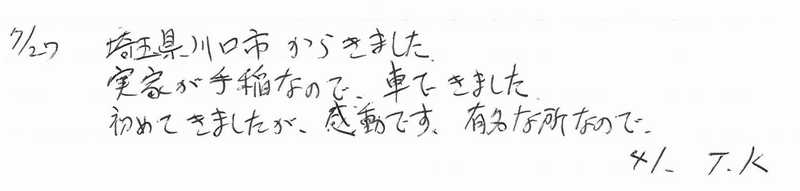 7/27 埼玉県川口市からきました.
実家が手稲なので、車できました.
初めてきましたが、感動です、有名な所なので、
T.K